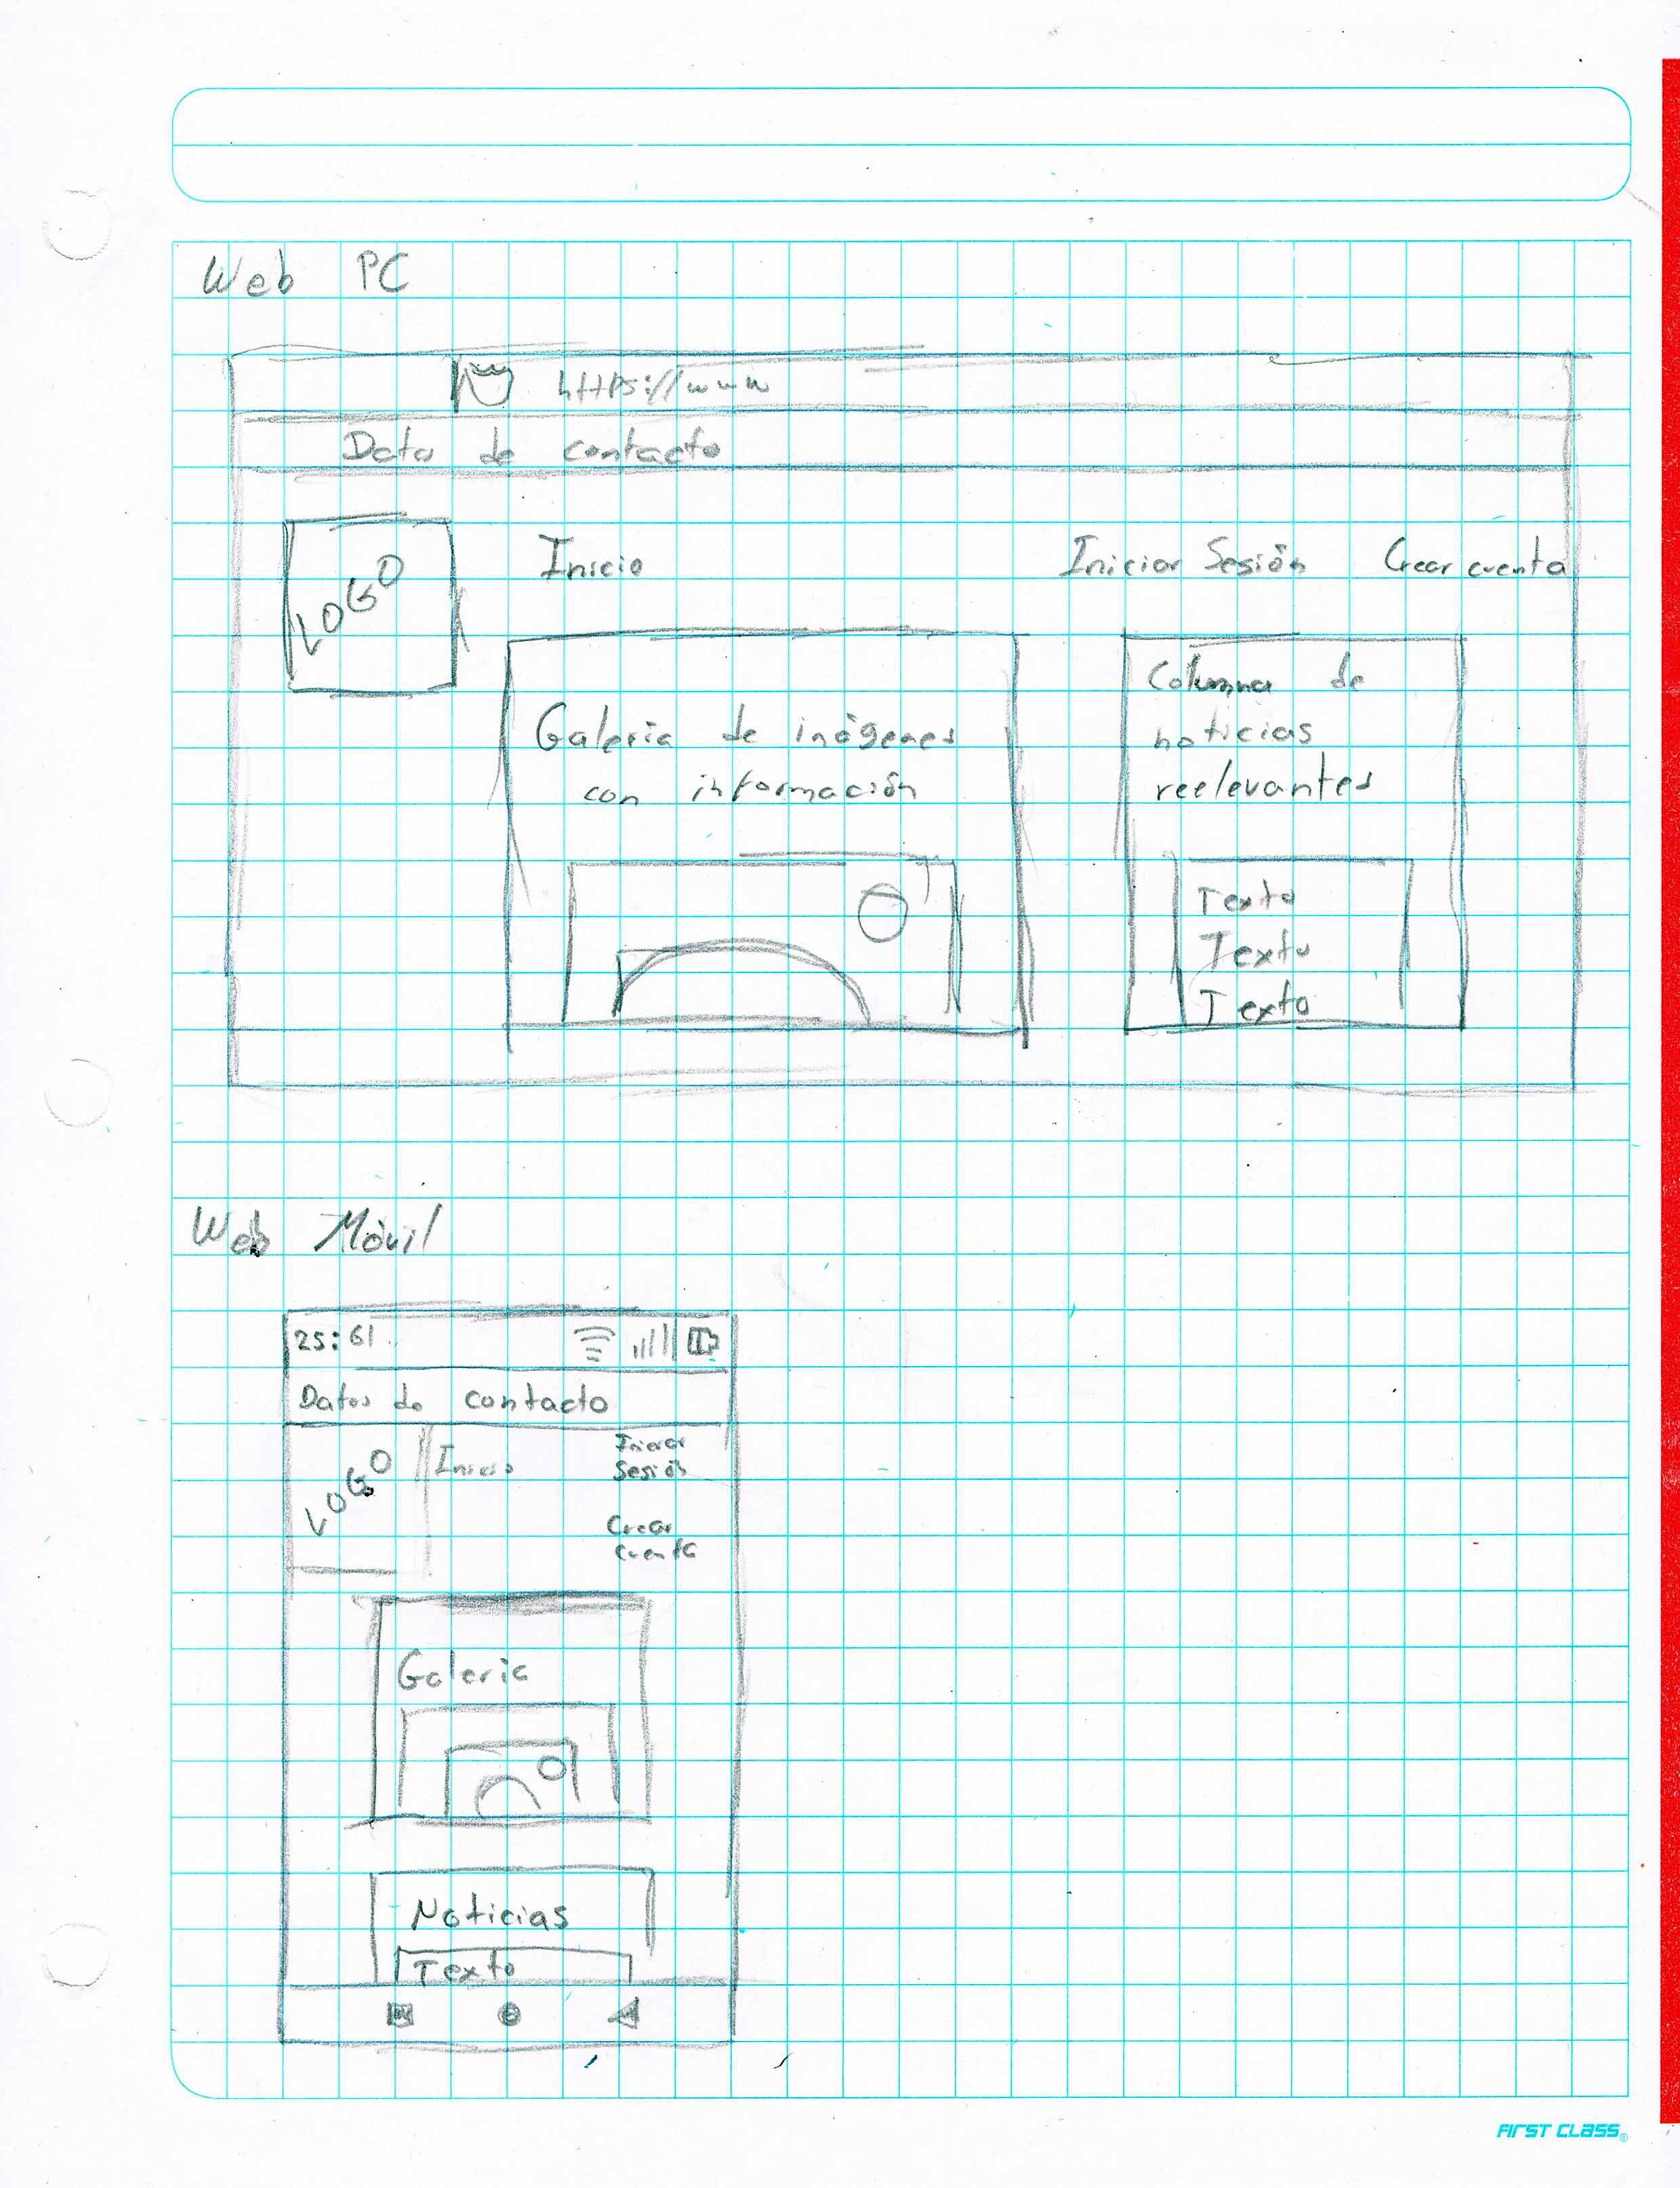 Web PC
https://www
Datos de contacto
LOGO
Inicio
Iniciar Sesión
Crear cuenta
Galeria de imágenes
con información
Columna de
noticias
reelevantes
Texto
Texto
Texto
Web Móvil
25:61
Datos de contacto
LOGO
Inicio
Iniciar
Sesión
Crear
cuenta
Galeria
Noticias
Texto
FIrST CLaSS